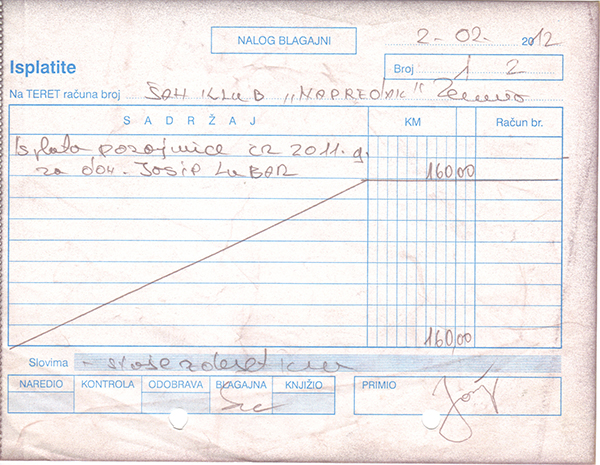 NALOG BLAGAJNI
2-02- 2012
Isplatite
Broj 1 2
Na TERET računa broj ŠAH KLUB „NAPREDAK"
SADRŽAJ KM Račun br.
Isplata pozajmice iz 2011. g.
za dom. JOSIP LUBAR 160,00
160,00
Slovima - stošezdeset km
NAREDIO KONTROLA ODOBRAVA BLAGAJNA KNJIŽIO PRIMIO